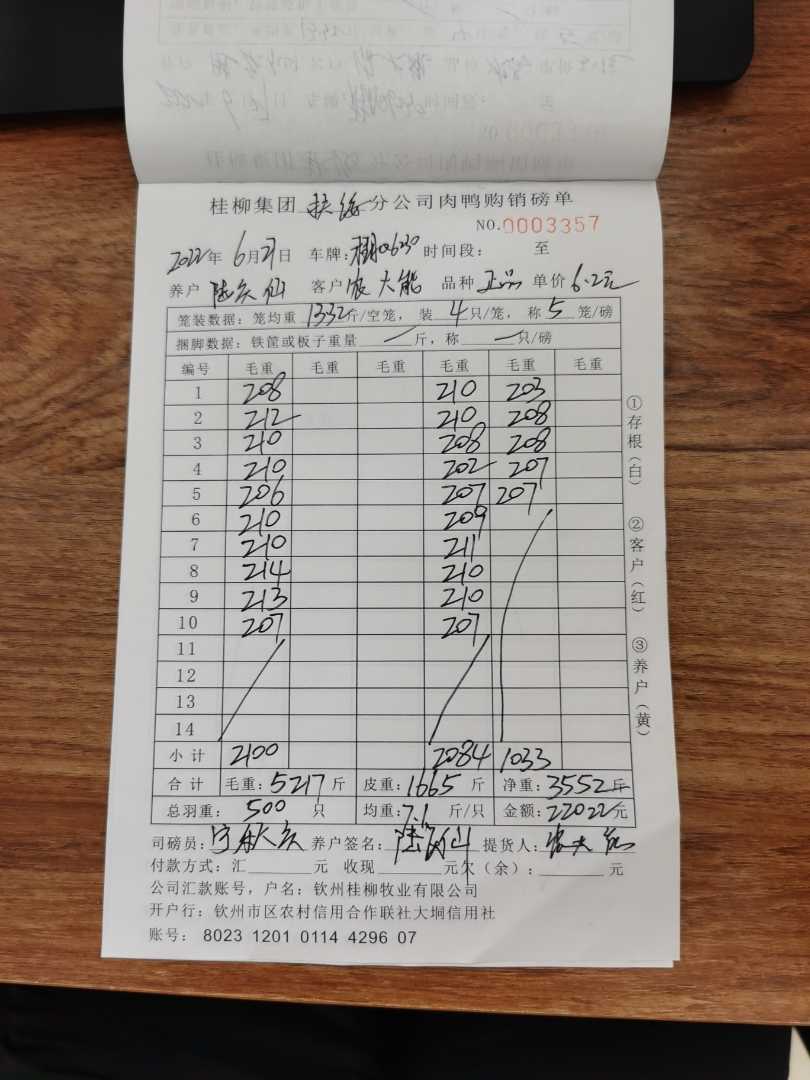 桂柳集团 扶绥 分公司肉鸭购销磅单
NO.0003357
2022年 6月21日 车牌: 0630 时间段: 至
养户 陆 仙 客户 农大能 品种 正品 单价 6.2元
笼装数据: 笼均重 1332斤/空笼, 装 4 只/笼, 称 5 笼/磅
捆脚数据: 铁筐或板子重量 — 斤, 称 — 只/磅
编号 毛重 毛重 毛重 毛重 毛重 毛重
1 208 210 203
2 212 210 208
3 210 208 208
4 210 202 207
5 206 207 207
6 210 209
7 210 211
8 214 210
9 213 210
10 207 207
11
12
13
14
小计 2100 2084 1033
合计 毛重: 5217 斤 皮重: 1665 斤 净重: 3552 斤
总羽重: 500 只 均重: 7.1 斤/只 金额: 22022元
司磅员: 养户签名: 陆 仙 提货人: 农大能
付款方式: 汇 元 收现 元欠(余): 元
公司汇款账号, 户名: 钦州桂柳牧业有限公司
开户行: 钦州市区农村信用合作联社大垌信用社
账号: 8023 1201 0114 4296 07
①存根(白)
②客户(红)
③养户(黄)